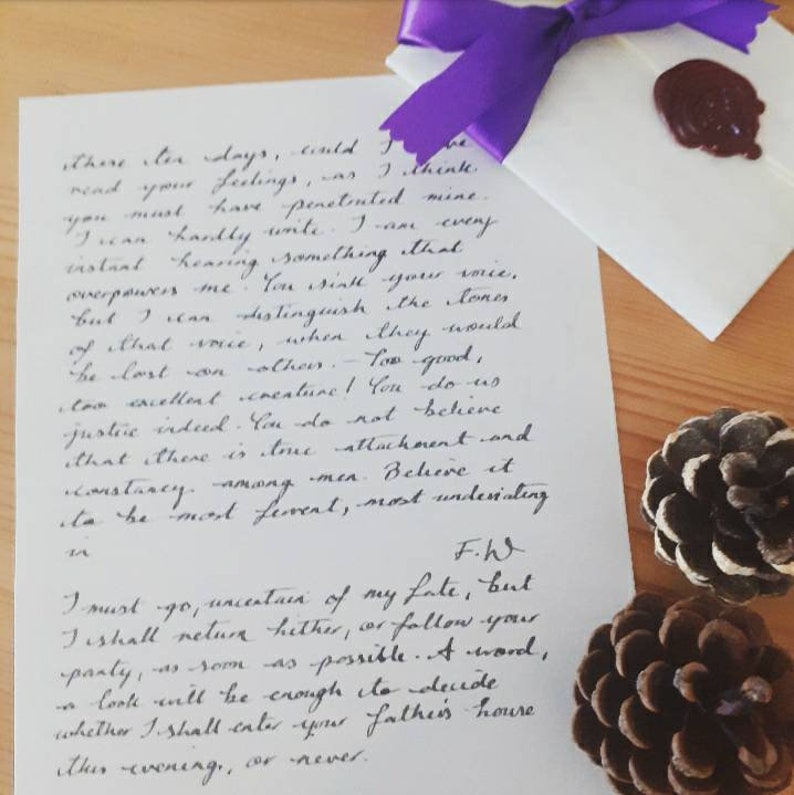 these ten days, could I
read your feelings, as I think
you must have penetrated mine.
I can hardly write. I am every
instant hearing something that
overpowers me. You sink your voice,
but I can distinguish the tones
of that voice, when they would
be lost on others. - Too good,
too excellent creature! You do us
justice indeed. You do not believe
that there is true attachment and
constancy among men. Believe it
to be most fervent, most undeviating
in
F.W
I must go, uncertain of my fate, but
I shall return hither, or follow your
party, as soon as possible. A word,
a look will be enough to decide
whether I shall enter your father's house
this evening, or never.